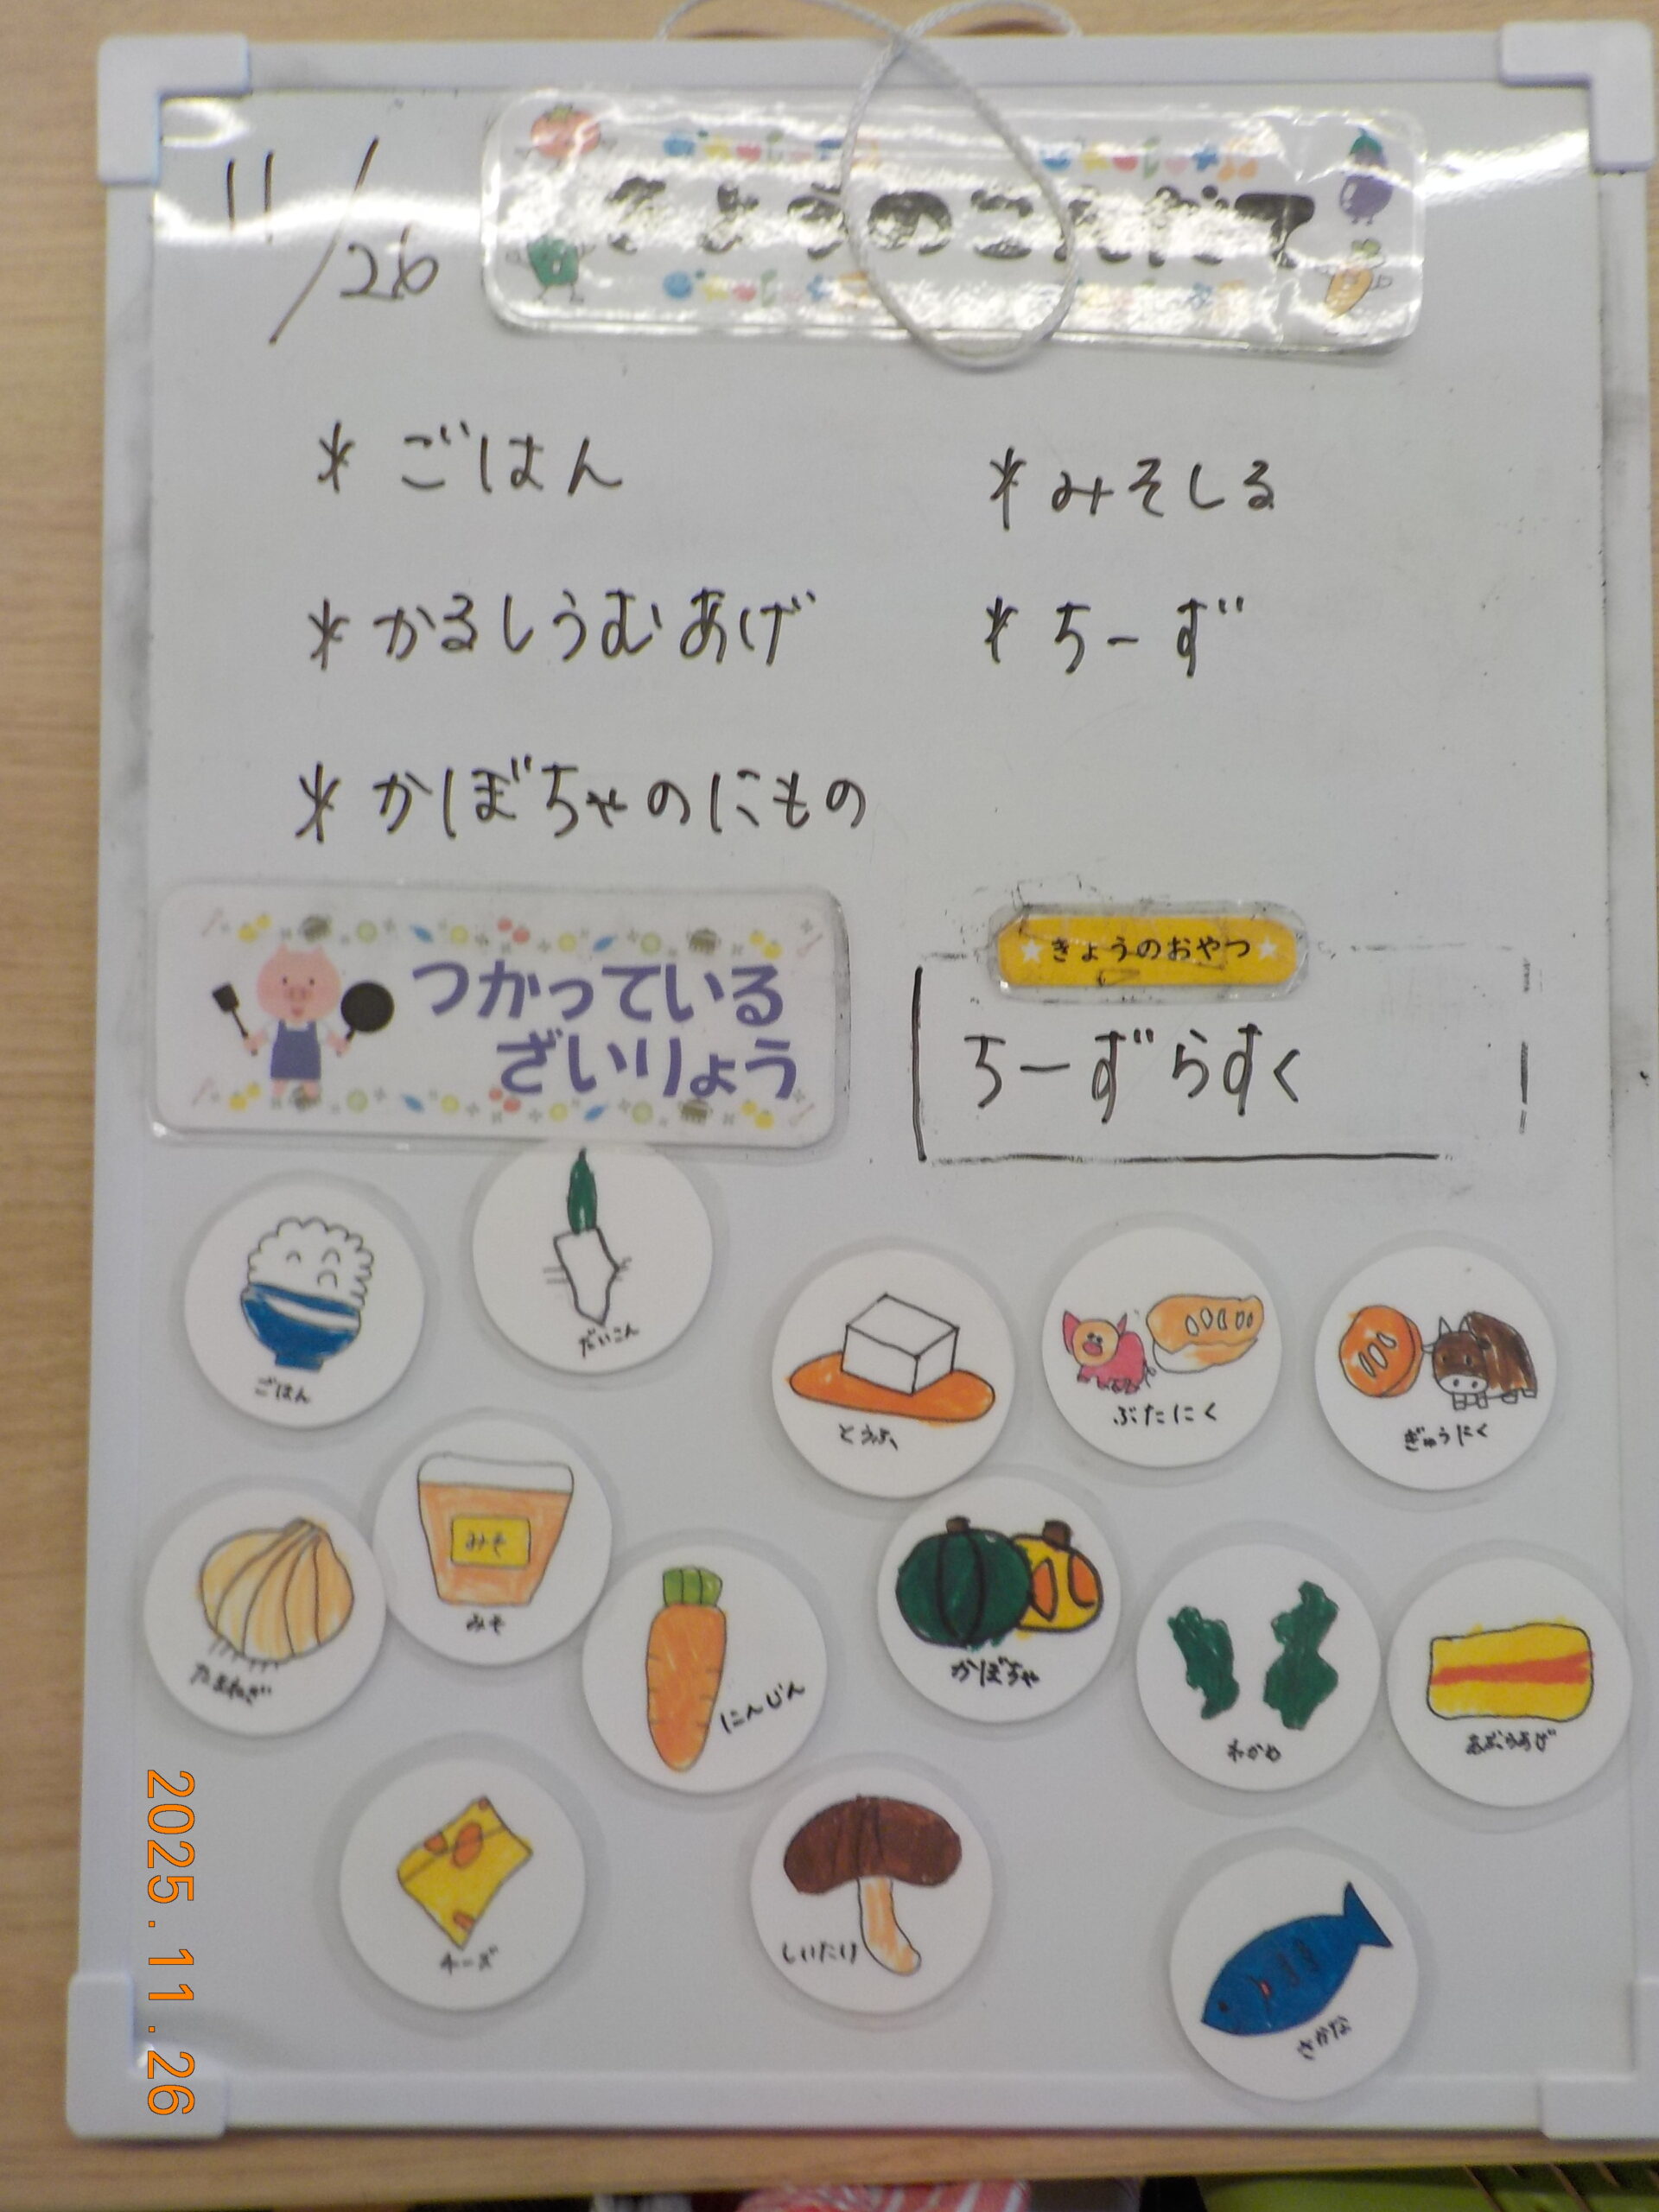 11/26
きょうのこんだて
* ごはん
* みそしる
* かるしうむあげ
* ちーず
* かぼちゃのにもの
つかっている
ざいりょう
きょうのおやつ
ちーずらすく
ごはん
だいこん
とうふ
ぶたにく
ぎゅうにく
たまねぎ
みそ
みそ
にんじん
かぼちゃ
わかめ
あぶらあげ
チーズ
しいたけ
さかな
2025.11.26